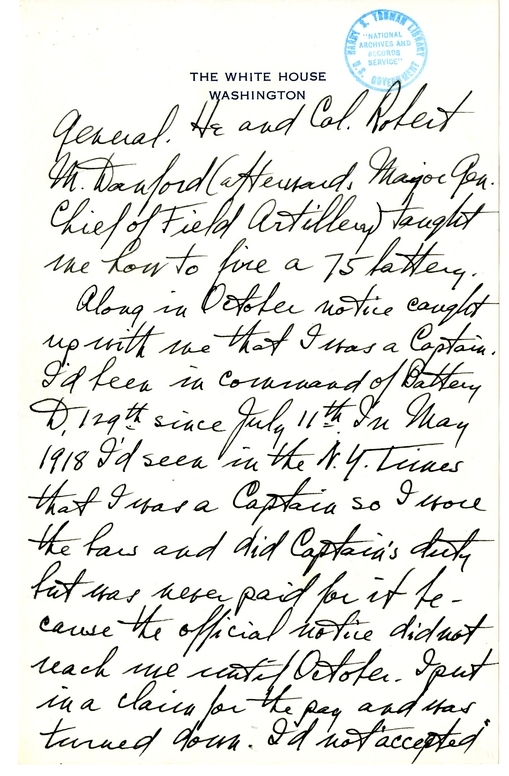 HARRY S. TRUMAN LIBRARY
"NATIONAL
ARCHIVES AND
RECORDS
SERVICE"
U.S. GOVERNMENT
THE WHITE HOUSE
WASHINGTON
General. He and Col. Robert
M. Danford (afterwards Major Gen.
Chief of Field Artillery) taught
me how to fire a 75 battery.
Along in October notice caught
up with me that I was a Captain.
I'd been in command of Battery
D, 129th since July 11th. In May
1918 I'd seen in the N.Y. Times
that I was a Captain so I wore
the bars and did Captain's duty
but was never paid for it be-
cause the official notice did not
reach me until October. I put
in a claim for the pay and was
turned down. I'd not "accepted"